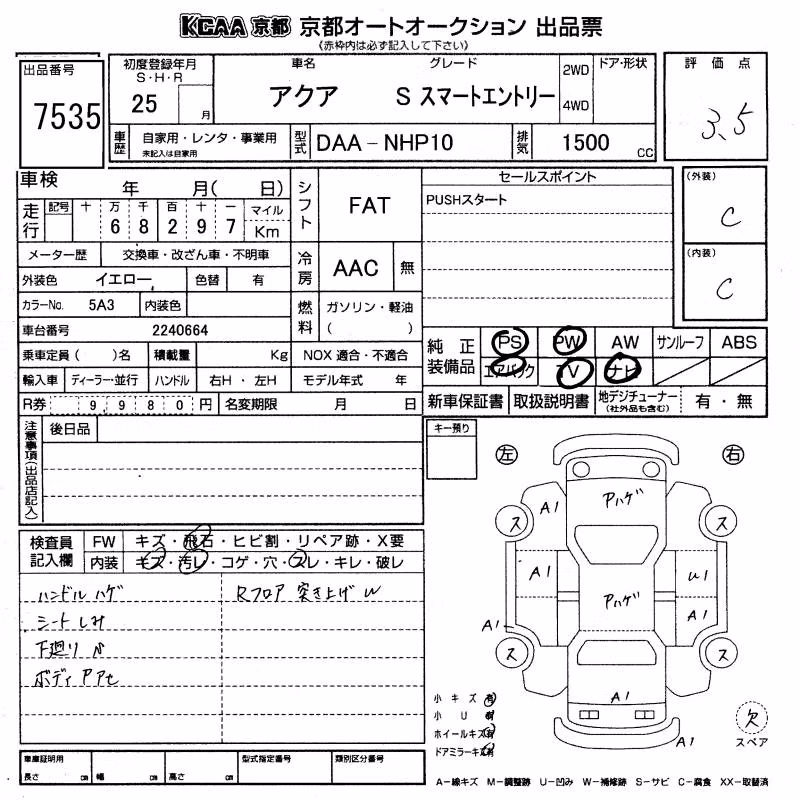 KCAA 京都 京都オートオークション 出品票
《赤枠内は必ず記入して下さい》
出品番号
7535
初度登録年月
S・H・R
25 月
車名
アクア
グレード
S スマートエントリー
2WD
4WD
ドア・形状
評価点
3.5
車歴
自家用・レンタ・事業用
未記入は自家用
型式
DAA－NHP10
排気
1500 CC
車検 年 月( 日)
走行
記号 十 万 千 百 十 一 マイル
6 8 2 9 7 Km
メーター歴 交換車・改ざん車・不明車
外装色 イエロー 色替 有
カラーNo. 5A3 内装色
車台番号 2240664
乗車定員 ( )名 積載量 Kg
輸入車 ディーラー・並行 ハンドル 右H・左H
R券 9 9 8 0 円 名変期限 月 日
シフト
FAT
冷房
AAC 無
燃料
ガソリン・軽油
( )
NOX 適合・不適合
モデル年式 年
セールスポイント
PUSHスタート
(外装)
C
(内装)
C
純正装備品
PS PW AW サンルーフ ABS
エアバック TV ナビ
新車保証書 取扱説明書 地デジチューナー
(社外品も含む)
有・無
注意事項(出品店記入)
後日品
キー預り
左
右
検査員記入欄
FW キズ・飛石・ヒビ割・リペア跡・X要
内装 キズ・汚レ・コゲ・穴・スレ・キレ・破レ
ハンドル ハゲ
シート しみ
下廻り
ボディ アアセ
Rフロア 突き上げ W
A1
Pハゲ
ス
ス
A1
Pハゲ
U1
A1
A1
ス
ス
A1
A1
欠
スペア
小キズ 有
小U 有
ホイールキズ 有
ドアミラーキズ 有
車庫証明用
長さ cm 幅 cm 高さ cm
型式指定番号
類別区分番号
A－線キズ M－調整跡 U－凹み W－補修跡 S－サビ C－腐食 XX－取替済